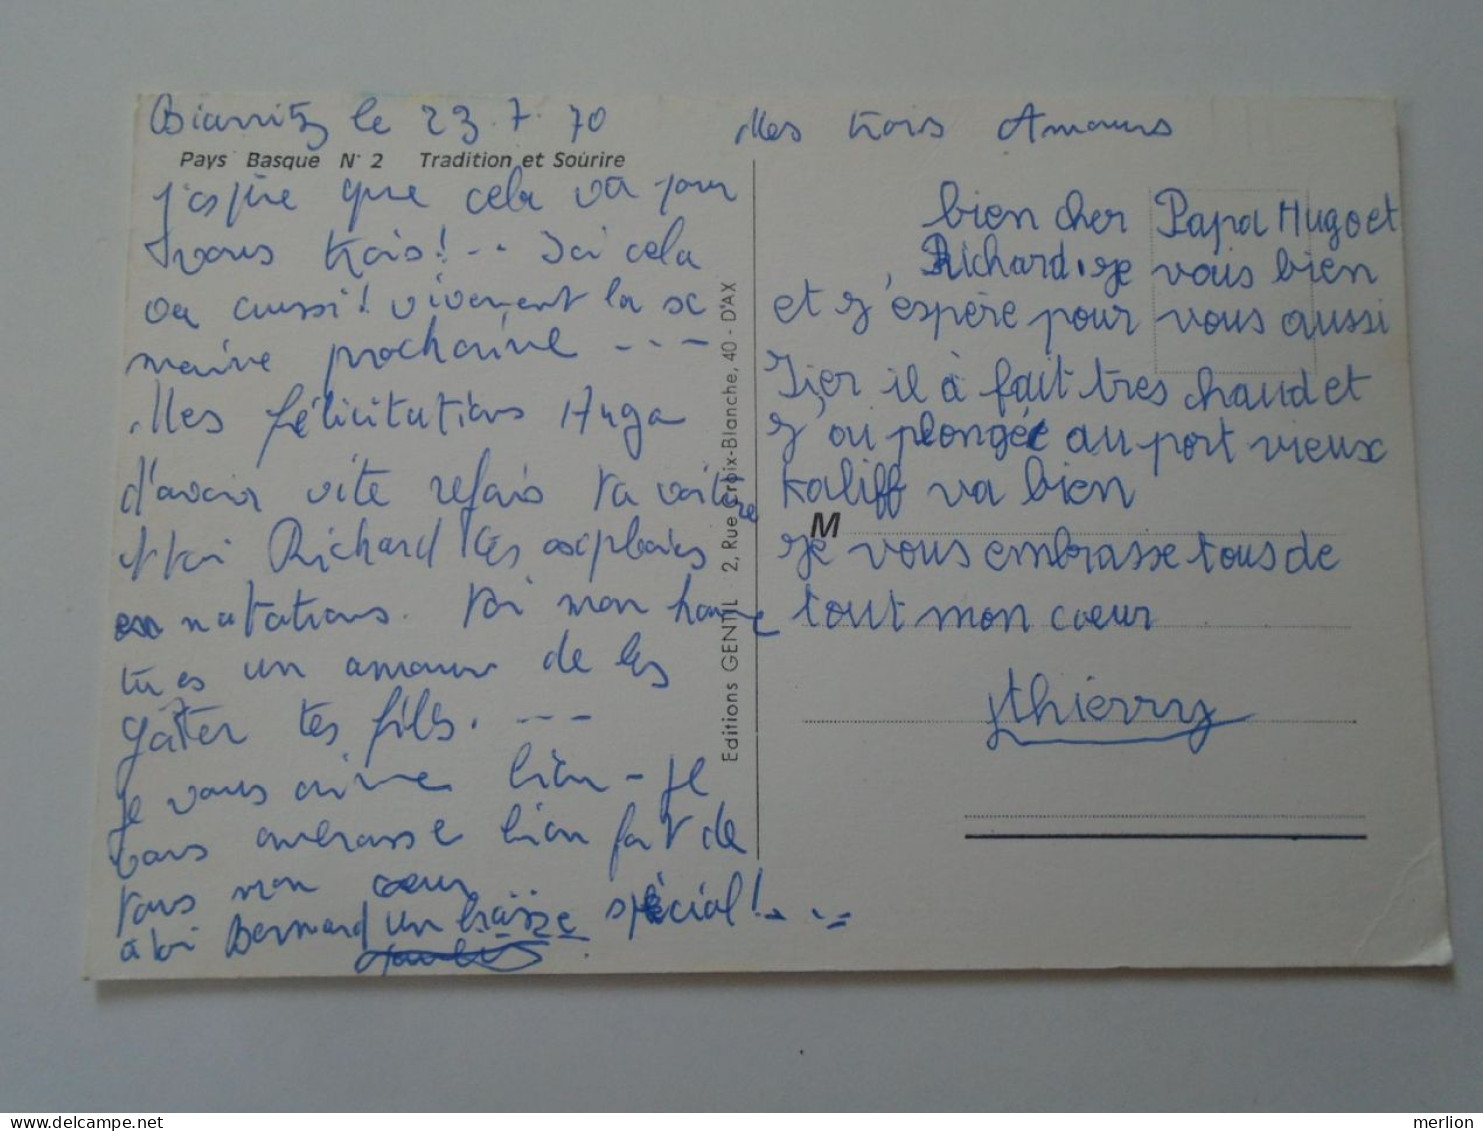 Biarritz le 23.7.70
Mes trois Amours
Pays Basque N° 2 Tradition et Sourire
j'espère que cela va pour
vous trois! -- Ici cela
va aussi! vivement la se
maine prochaine ---
Mes félicitations Hugo
d'avoir vite refais ta voiture
et toi Richard tes exploits
en natations. toi mon homme
tu es un amour de les
gâter tes fils. ---
je vous aime bien - je
vous embrasse bien fort de
tous mon coeur
à toi Bernard un baisse spécial! - - =
Editions GENTIL - 2, Rue Croix-Blanche, 40 - DAX
bien cher Papa Hugo et
Richard. je vous bien
et j'espère pour vous aussi
Ier il à fait tres chaud et
j'ou plongée au port vieux
Kaliff va bien
M
je vous embrasse tous de
tout mon coeur
thierry
merlion